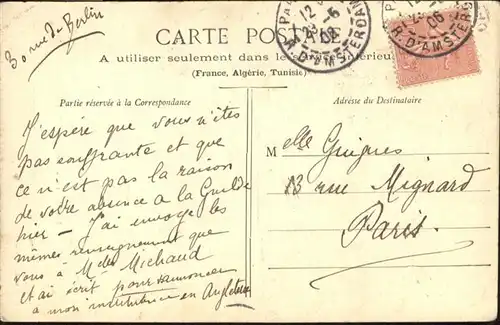 30 rue de Berlin
CARTE POSTALE
A utiliser seulement dans le service intérieur
(France, Algérie, Tunisie)
Partie réservée à la Correspondance
J'espère que vous n'êtes
pas souffrante et que
ce n'est pas la raison
de votre absence à la Guilde
hier — J'ai envoyé les
mêmes renseignements que
vous à M
Michaud
et ai écrit pour
à mon institutrice en Angleterre
Adresse du Destinataire
Melle Guigues
13 rue Mignard
Paris.
PARIS
12
25-5
06
R. D'AMSTERDAM
PA
12
06
R. D'AMSTERD